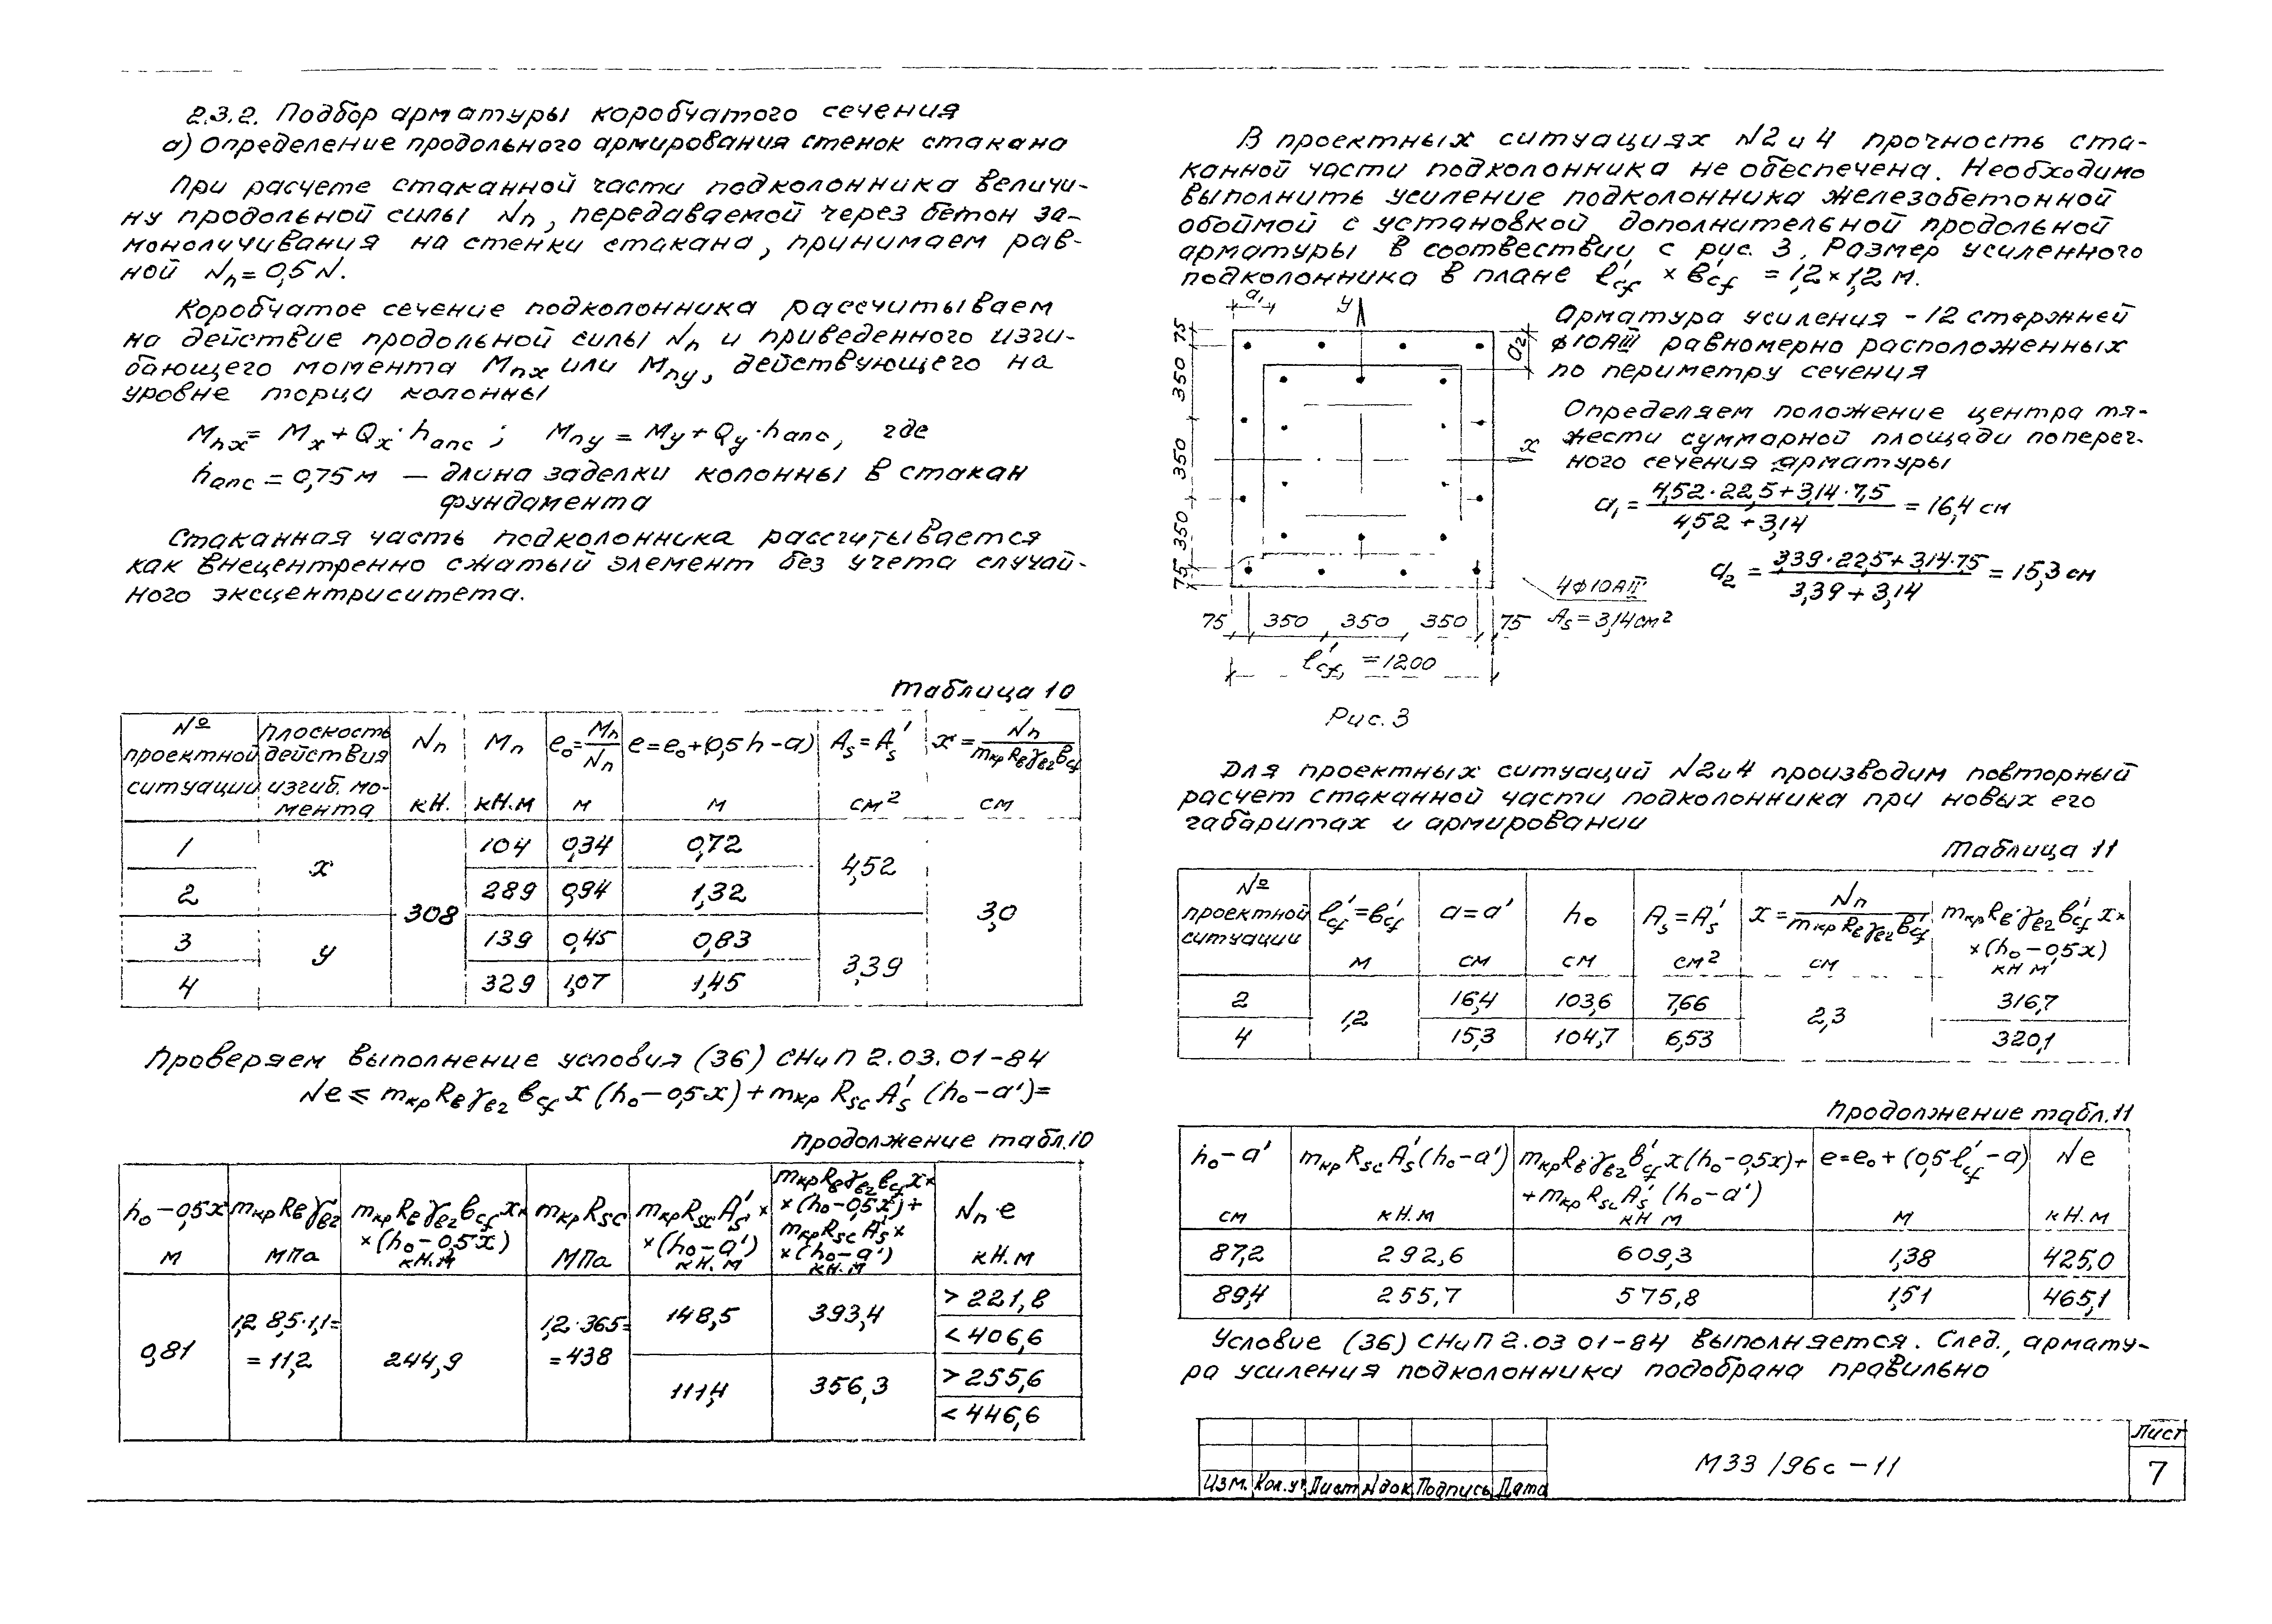 2.3.2. Подбор арматуры коробчатого сечения
а) Определение продольного армирования стенок стакана
При расчете стаканной части подколонника величи-
ну продольной силы Nп, передаваемой через бетон за-
моноличивания на стенки стакана, принимаем рав-
ной Nп = 0,5 N.
Коробчатое сечение подколонника рассчитываем
на действие продольной силы Nп и приведенного изги-
бающего момента Mпх или Mпу, действующего на
уровне торца колонны
Mпх = Mх + Qх · hanc ; Mпу = Mу + Qу · hanc, где
hanc = 0,75 м — длина заделки колонны в стакан
фундамента
Стаканная часть подколонника рассчитывается
как внецентренно сжатый элемент без учета случай-
ного эксцентриситета.
Таблица 10
№ проектной ситуации | Плоскость действия изгиб. мо-мента | Nп кН. | Mп кН.м | e₀ = Mп/Nп м | e = e₀+(0,5h-a) м | As = As' см² | x = Nп/mкр Rв γв2 вcf см
1 | х | 308 | 104 | 0,34 | 0,72 | 4,52 | 3,0
2 | 289 | 0,94 | 1,32
3 | у | 139 | 0,45 | 0,83 | 3,39
4 | 329 | 1,07 | 1,45
Проверяем выполнение условия (36) СНиП 2.03.01-84
Ne ≤ mкр Rв γв2 вcf x (h₀-0,5x) + mкр Rsc As' (h₀-a') =
Продолжение табл.10
h₀-0,5x м | mкр Rв γв2 МПа | mкр Rв γв2 вcf x× ×(h₀-0,5x) кН.м | mкр Rsc МПа | mкр Rsc As' × ×(h₀-a') кН.м | mкр Rв γв2 вcf x× ×(h₀-0,5x)+ mкр Rsc As'× ×(h₀-a') кН.м | Nп·e кН.м
0,81 | 1,2 8,5·1,1= =11,2 | 244,9 | 1,2·365= =438 | 148,5 | 393,4 | > 221,8
< 406,6
111,4 | 356,3 | > 255,6
< 446,6
В проектных ситуациях N2 и 4 прочность ста-
канной части подколонника не обеспечена. Необходимо
выполнить усиление подколонника железобетонной
обоймой с установкой дополнительной продольной
арматуры в соотвествии с рис. 3. Размер усиленного
подколонника в плане l'cf × в'cf = 1,2 × 1,2 м.
a₁
у
75
350
350
350
75
a₂
х
75 350 350 350 75
l'cf = 1200
4ф10АIII
As = 3,14 см²
Рис. 3
Арматура усиления - 12 стержней
ф10АIII равномерно расположенных
по периметру сечения
Определяем положение центра тя-
жести суммарной площади попереч-
ного сечения арматуры
a₁ = 4,52·22,5+3,14·7,5 / 4,52+3,14 = 16,4 см
a₂ = 3,39·22,5+3,14·75 / 3,39+3,14 = 15,3 см
Для проектных ситуаций N2и4 производим повторный
расчет стаканной части подколонника при новых его
габаритах и армировании
Таблица 11
№ проектной ситуации | l'cf = в'cf м | a = a' см | h₀ см | As = As' см² | x = Nп/mкр Rв γв2 в'cf см | mкр Rв·γв2 в'cf x× ×(h₀-0,5x) кН м
2 | 1,2 | 16,4 | 103,6 | 7,66 | 2,3 | 316,7
4 | 15,3 | 104,7 | 6,53 | 320,1
Продолжение табл.11
h₀-a' см | mкр Rsc As'(h₀-a') кН.м | mкр Rв·γв2 в'cf x(h₀-0,5x)+ +mкр Rsc As' (h₀-a') кН м | e = e₀ + (0,5 l'cf - a) м | Ne кН.м
87,2 | 292,6 | 609,3 | 1,38 | 425,0
89,4 | 255,7 | 575,8 | 1,51 | 465,1
Условие (36) СНиП 2.03 01-84 выполняется. След., армату-
ра усиления подколонника подобрана правильно
Изм. Кол.уч Лист Nдок Подпись Дата
М33 /96с - 11
Лист
7